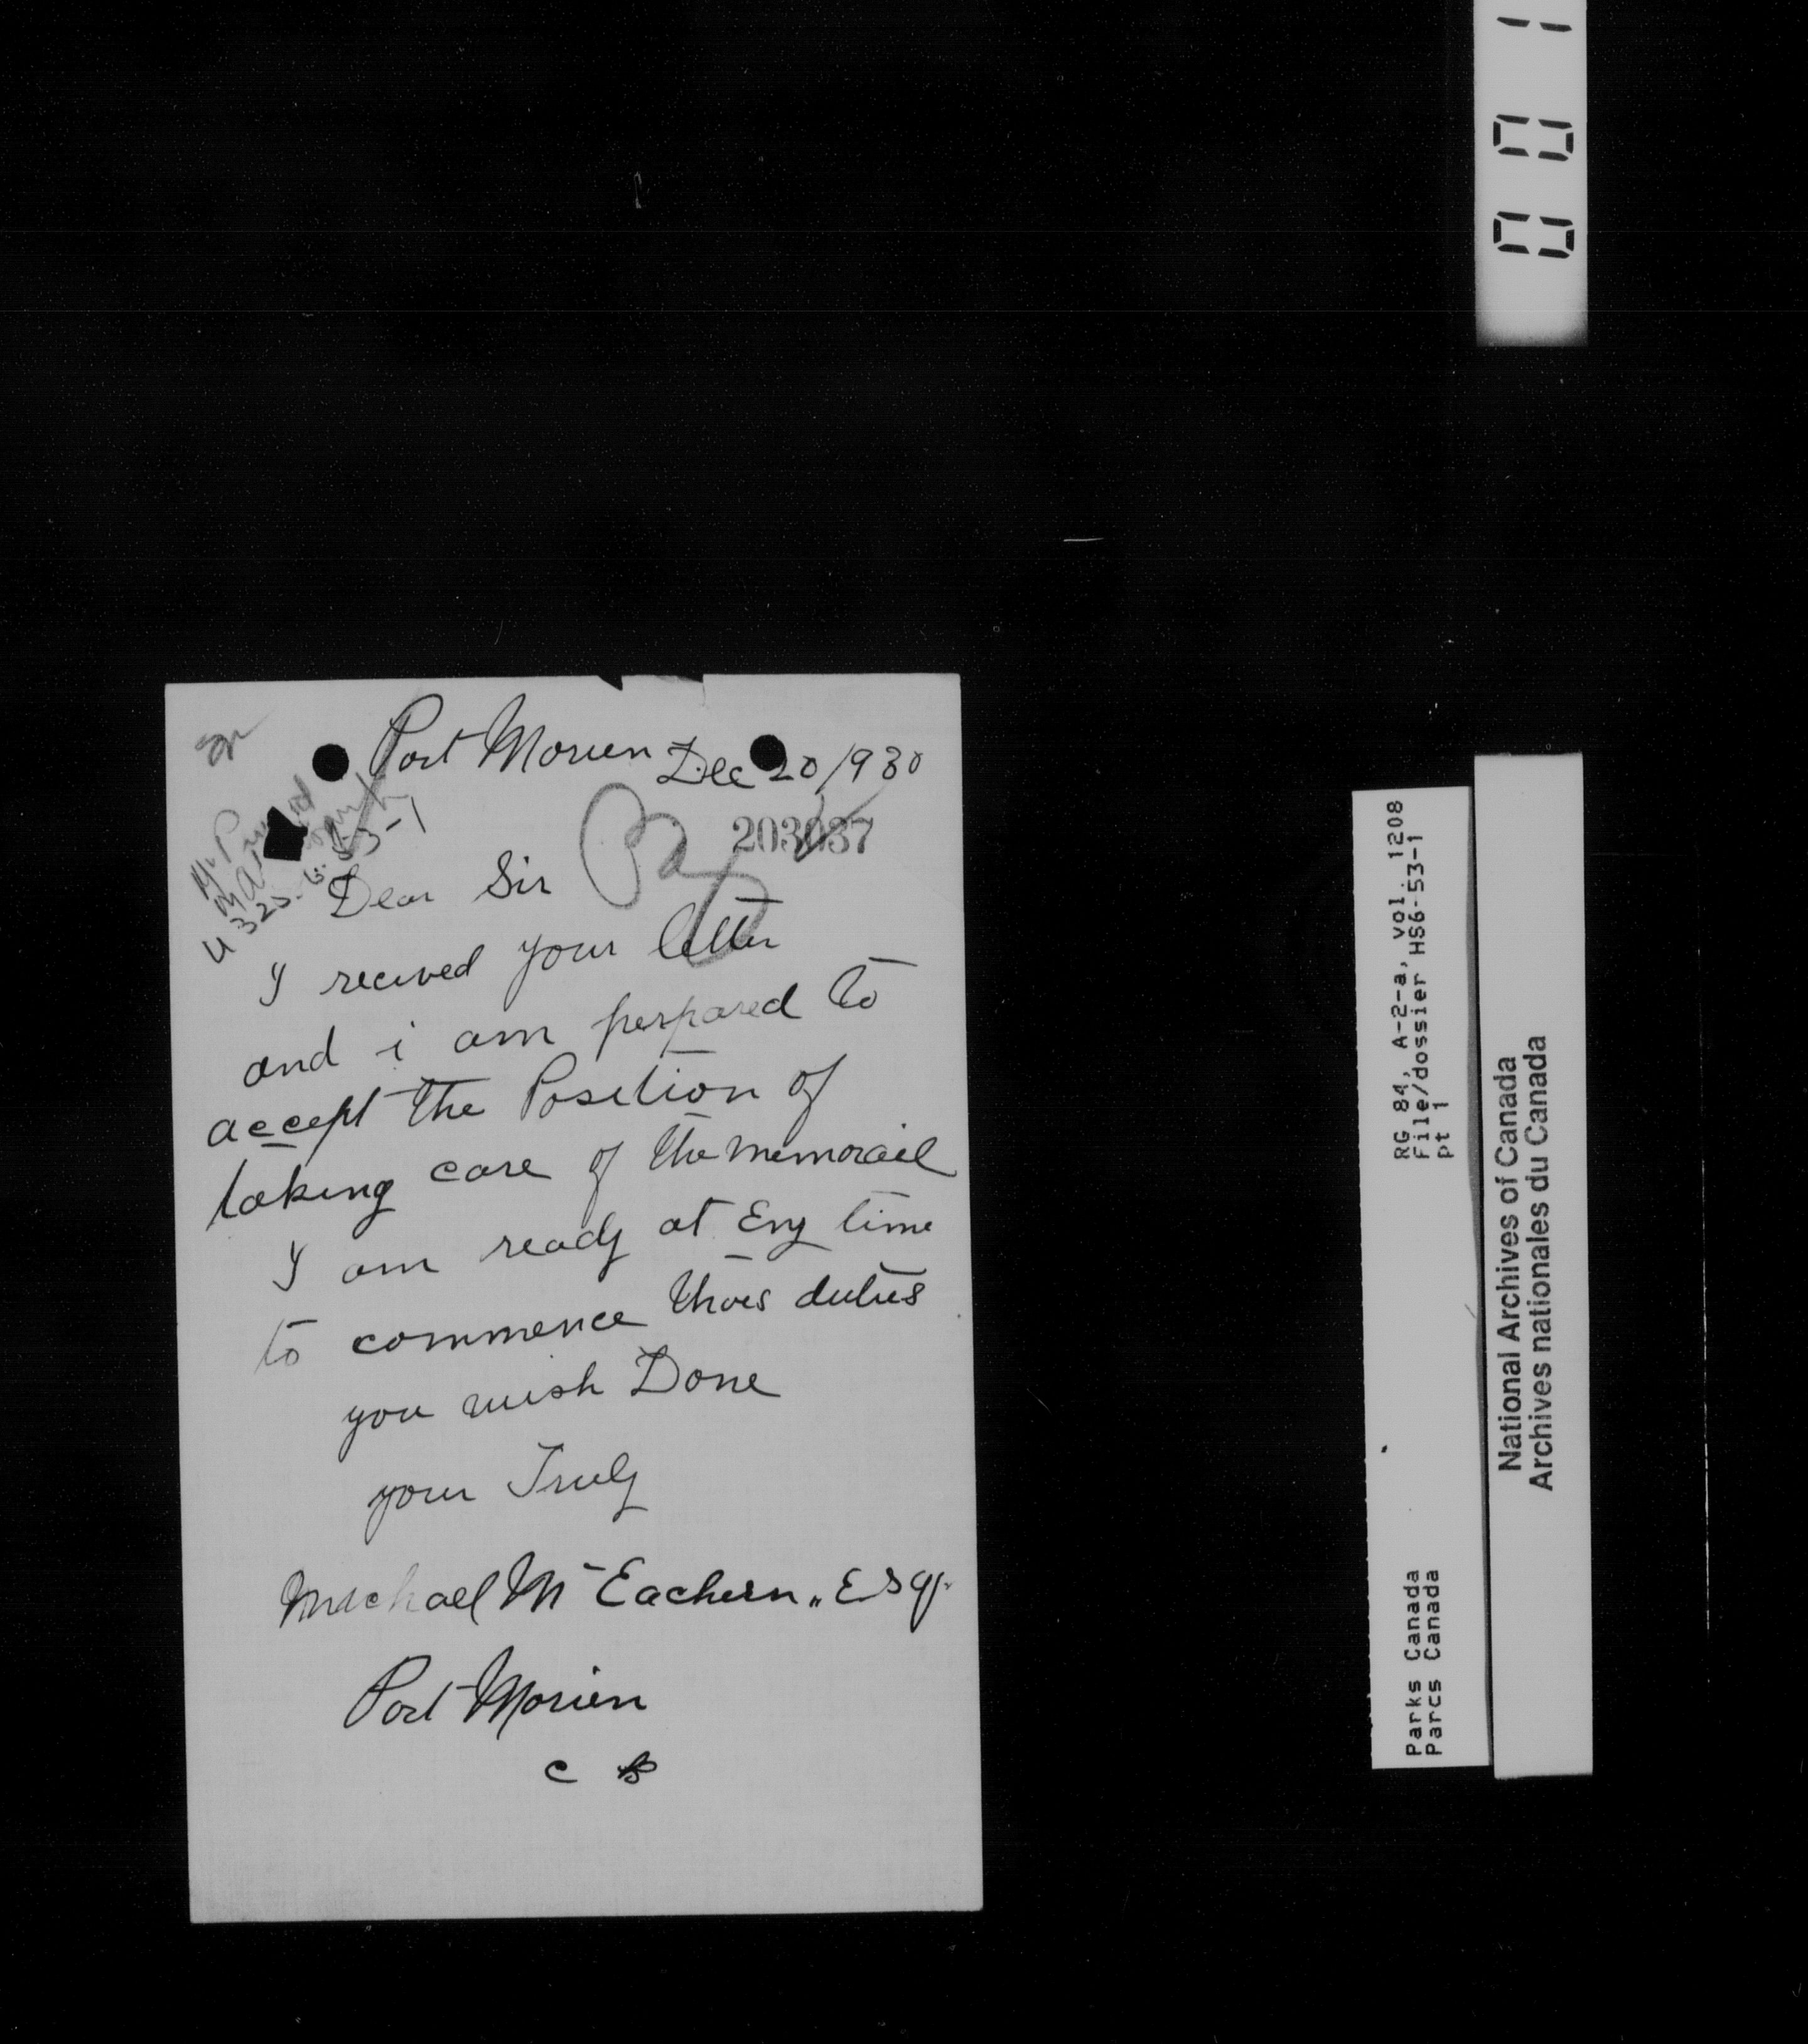 Port Morien Dec 20/930
203037
Dear Sir
I recived your letter
and i am perpared to
accept the Position of
taking care of the memorail
I am ready at Eny time
to commence thoes duties
you wish Done
your Truly
Michael Mc Eachern,, Esq.
Port Morien
C B
U 325-6-53-1
0001
RG 84, A-2-a, vol. 1208
File/dossier HS6-53-1
pt 1
Parks Canada
Parcs Canada
National Archives of Canada
Archives nationales du Canada